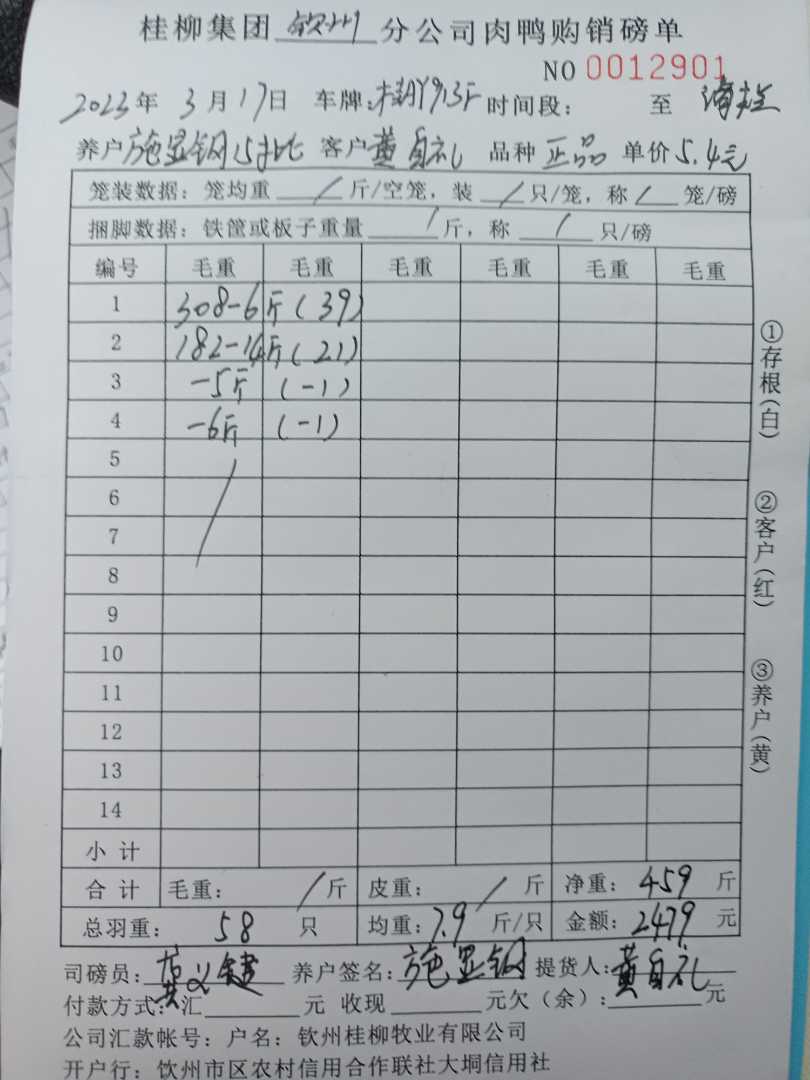 桂柳集团 钦州 分公司肉鸭购销磅单
NO 0012901
2023年 3月17日 车牌: 时间段: 至
养户 施显钢 客户 黄自礼 品种 正品 单价 5.4元
笼装数据：笼均重 / 斤/空笼，装 / 只/笼，称 / 笼/磅
捆脚数据：铁筐或板子重量 / 斤，称 / 只/磅
编号 毛重 毛重 毛重 毛重 毛重 毛重
1 308-6斤 (39)
2 182-14斤 (21)
3 -5斤 (-1)
4 -6斤 (-1)
5
6
7
8
9
10
11
12
13
14
小计
合计 毛重: / 斤 皮重: / 斤 净重: 459 斤
总羽重: 58 只 均重: 7.9 斤/只 金额: 2479 元
司磅员: 黄义健 养户签名: 施显钢 提货人: 黄自礼
付款方式: 汇 元 收现 元欠（余）: 元
公司汇款帐号：户名：钦州桂柳牧业有限公司
开户行：钦州市区农村信用合作联社大垌信用社
①存根(白)
②客户(红)
③养户(黄)